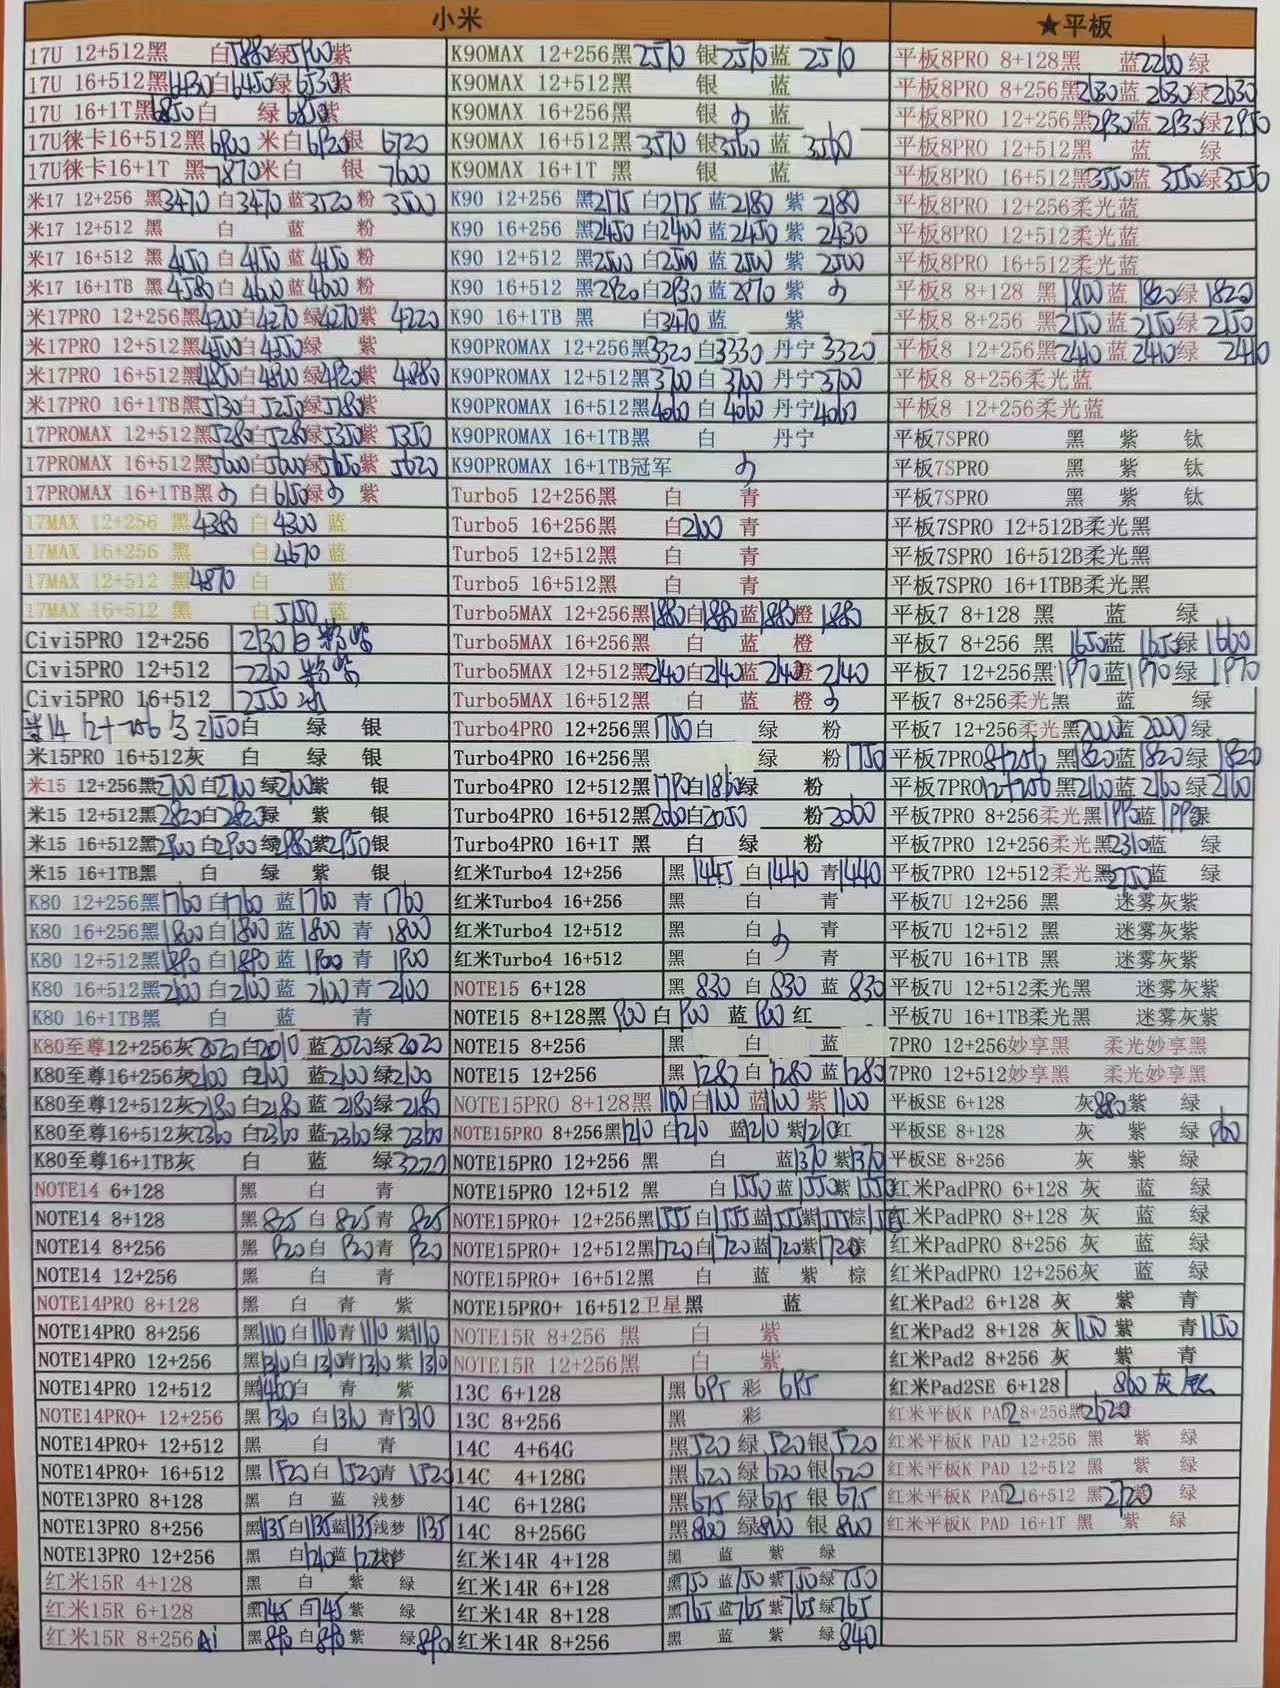 小米
★平板
17U 12+512黑 白5880绿5900紫
17U 16+512黑6430白6450绿6530紫
17U 16+1T黑6850白 绿6850紫
17U徕卡16+512黑6900米白6920银 6720
17U徕卡16+1T 黑7870米白 银7600
米17 12+256 黑3470白3470蓝3520粉 3500
米17 12+512 黑 白 蓝 粉
米17 16+512 黑4150白4150蓝4150粉
米17 16+1TB 黑4580白4600蓝4600粉
米17PRO 12+256黑4200白4270绿4270紫 4220
米17PRO 12+512黑4500白4550绿 紫
米17PRO 16+512黑4850白4800绿4920紫 4880
米17PRO 16+1TB黑5130白5250绿5180紫
17PROMAX 12+512黑5280白5280绿5350紫 5350
17PROMAX 16+512黑5600白5600绿5650紫 5620
17PROMAX 16+1TB黑 白6150绿 紫
17MAX 12+256 黑4380 白4300 蓝
17MAX 16+256 黑 白4670蓝
17MAX 12+512 黑4870 白 蓝
17MAX 16+512 黑 白5150蓝
Civi5PRO 12+256 2130白粉紫
Civi5PRO 12+512 2200粉紫
Civi5PRO 16+512 2550
米14 12+256 2150白 绿 银
米15PRO 16+512灰 白 绿 银
米15 12+256黑2700白2700绿2700紫 银
米15 12+512黑2820白2820绿 紫 银
米15 16+512黑2900白2900绿2980紫2950银
米15 16+1TB黑 白 绿 紫 银
K80 12+256黑1760白1760蓝1760青 1760
K80 16+256黑1800白1800蓝1800青 1800
K80 12+512黑1890白1890蓝1900青 1900
K80 16+512黑2100白2100蓝2100青 2100
K80 16+1TB黑 白 蓝 青
K80至尊12+256灰2020白2010蓝2020绿2020
K80至尊16+256灰2100白2100蓝2100绿2100
K80至尊12+512灰2180白2180蓝2180绿2180
K80至尊16+512灰2360白2360蓝2360绿2360
K80至尊16+1TB灰 白 蓝 绿3220
NOTE14 6+128 黑 白 青
NOTE14 8+128 黑825白825青825
NOTE14 8+256 黑920白920青920
NOTE14 12+256 黑 白 青
NOTE14PRO 8+128 黑 白 青 紫
NOTE14PRO 8+256 黑1110白1110青1110紫1110
NOTE14PRO 12+256 黑1310白1310青1310紫1310
NOTE14PRO 12+512 黑1460白 青 紫
NOTE14PRO+ 12+256 黑1310白1310青1310
NOTE14PRO+ 12+512 黑 白 青
NOTE14PRO+ 16+512 黑1520白1520青1520
NOTE13PRO 8+128 黑 白 蓝 浅梦
NOTE13PRO 8+256 黑1135白1135蓝1135浅梦1135
NOTE13PRO 12+256 黑 白1210蓝 浅梦
红米15R 4+128 黑 白 紫 绿
红米15R 6+128 黑745白745紫 绿
红米15R 8+256 黑890白890紫 绿890
K90MAX 12+256黑2570银2570蓝2570
K90MAX 12+512黑 银 蓝
K90MAX 16+256黑 银 蓝
K90MAX 16+512黑3570银3560蓝3560
K90MAX 16+1T 黑 银 蓝
K90 12+256 黑2175白2175蓝2180紫2180
K90 16+256 黑2450白2400蓝2450紫2430
K90 12+512 黑2500白2500蓝2500紫2500
K90 16+512 黑2920白2930蓝2970紫
K90 16+1TB 黑 白3470蓝 紫
K90PROMAX 12+256黑3320白3330丹宁3320
K90PROMAX 12+512黑3700白3700丹宁3700
K90PROMAX 16+512黑4060白4060丹宁4060
K90PROMAX 16+1TB黑 白 丹宁
K90PROMAX 16+1TB冠军
Turbo5 12+256黑 白 青
Turbo5 16+256黑 白2100青
Turbo5 12+512黑 白 青
Turbo5 16+512黑 白 青
Turbo5MAX 12+256黑1880白1880蓝1880橙1880
Turbo5MAX 16+256黑 白 蓝 橙
Turbo5MAX 12+512黑2140白2140蓝2140橙2140
Turbo5MAX 16+512黑 白 蓝 橙
Turbo4PRO 12+256黑1750白 绿 粉
Turbo4PRO 16+256黑 绿 粉1750
Turbo4PRO 12+512黑1790白1860绿 粉
Turbo4PRO 16+512黑2060白2050 粉2060
Turbo4PRO 16+1T 黑 白 绿 粉
红米Turbo4 12+256 黑1445白1440青1440
红米Turbo4 16+256 黑 白 青
红米Turbo4 12+512 黑 白 青
红米Turbo4 16+512 黑 白 青
NOTE15 6+128 黑830白830蓝830
NOTE15 8+128黑900白900蓝900红
NOTE15 8+256 黑 白 蓝
NOTE15 12+256 黑1280白1280蓝1280
NOTE15PRO 8+128黑1100白1100蓝1100紫1100
NOTE15PRO 8+256黑1210白1210蓝1210紫1210红
NOTE15PRO 12+256 黑 白 蓝1370紫1370
NOTE15PRO 12+512 黑 白1550蓝1550紫1550
NOTE15PRO+ 12+256黑1555白1555蓝1555紫1555棕
NOTE15PRO+ 12+512黑1720白1720蓝1720紫1720棕
NOTE15PRO+ 16+512黑 白 蓝 紫 棕
NOTE15PRO+ 16+512卫星黑 蓝
NOTE15R 8+256 黑 白 紫
NOTE15R 12+256黑 白 紫
13C 6+128 黑695彩695
13C 8+256 黑 彩
14C 4+64G 黑520绿520银520
14C 4+128G 黑620绿620银620
14C 6+128G 黑675绿675银675
14C 8+256G 黑800绿800银800
红米14R 4+128 黑 蓝 紫 绿
红米14R 6+128 黑750蓝750紫750绿750
红米14R 8+128 黑765蓝765紫765绿765
红米14R 8+256 黑 蓝 紫 绿840
平板8PRO 8+128黑 蓝2260绿
平板8PRO 8+256黑2630蓝2630绿2630
平板8PRO 12+256黑2930蓝2930绿2950
平板8PRO 12+512黑 蓝 绿
平板8PRO 16+512黑3550蓝3550绿3550
平板8PRO 12+256柔光蓝
平板8PRO 12+512柔光蓝
平板8PRO 16+512柔光蓝
平板8 8+128 黑1800蓝1820绿1820
平板8 8+256 黑2150蓝2150绿2150
平板8 12+256黑2410蓝2410绿2410
平板8 8+256柔光蓝
平板8 12+256柔光蓝
平板7SPRO 黑 紫 钛
平板7SPRO 黑 紫 钛
平板7SPRO 黑 紫 钛
平板7SPRO 12+512B柔光黑
平板7SPRO 16+512B柔光黑
平板7SPRO 16+1TBB柔光黑
平板7 8+128 黑 蓝 绿
平板7 8+256 黑1650蓝1650绿1660
平板7 12+256黑1970蓝1970绿1970
平板7 8+256柔光黑 蓝 绿
平板7 12+256柔光黑2000蓝2000绿
平板7PRO8+256 黑1820蓝1820绿1820
平板7PRO12+256黑2160蓝2160绿2160
平板7PRO 8+256柔光黑1990蓝1990绿
平板7PRO 12+256柔光黑2310蓝 绿
平板7PRO 12+512柔光黑2750蓝 绿
平板7U 12+256 黑 迷雾灰紫
平板7U 12+512 黑 迷雾灰紫
平板7U 16+1TB 黑 迷雾灰紫
平板7U 12+512柔光黑 迷雾灰紫
平板7U 16+1TB柔光黑 迷雾灰紫
7PRO 12+256妙享黑 柔光妙享黑
7PRO 12+512妙享黑 柔光妙享黑
平板SE 6+128 灰880紫 绿
平板SE 8+128 灰 紫 绿960
平板SE 8+256 灰 紫 绿
红米PadPRO 6+128 灰 蓝 绿
红米PadPRO 8+128 灰 蓝 绿
红米PadPRO 8+256 灰 蓝 绿
红米PadPRO 12+256灰 蓝 绿
红米Pad2 6+128 灰 紫 青
红米Pad2 8+128 灰1150紫 青1150
红米Pad2 8+256 灰 紫 青
红米Pad2SE 6+128 860灰
红米平板K PAD2 8+256黑2620
红米平板K PAD 12+256 黑 紫 绿
红米平板K PAD 12+512 黑 紫 绿
红米平板K PAD2 16+512 黑 紫 绿
红米平板K PAD 16+1T 黑 紫 绿